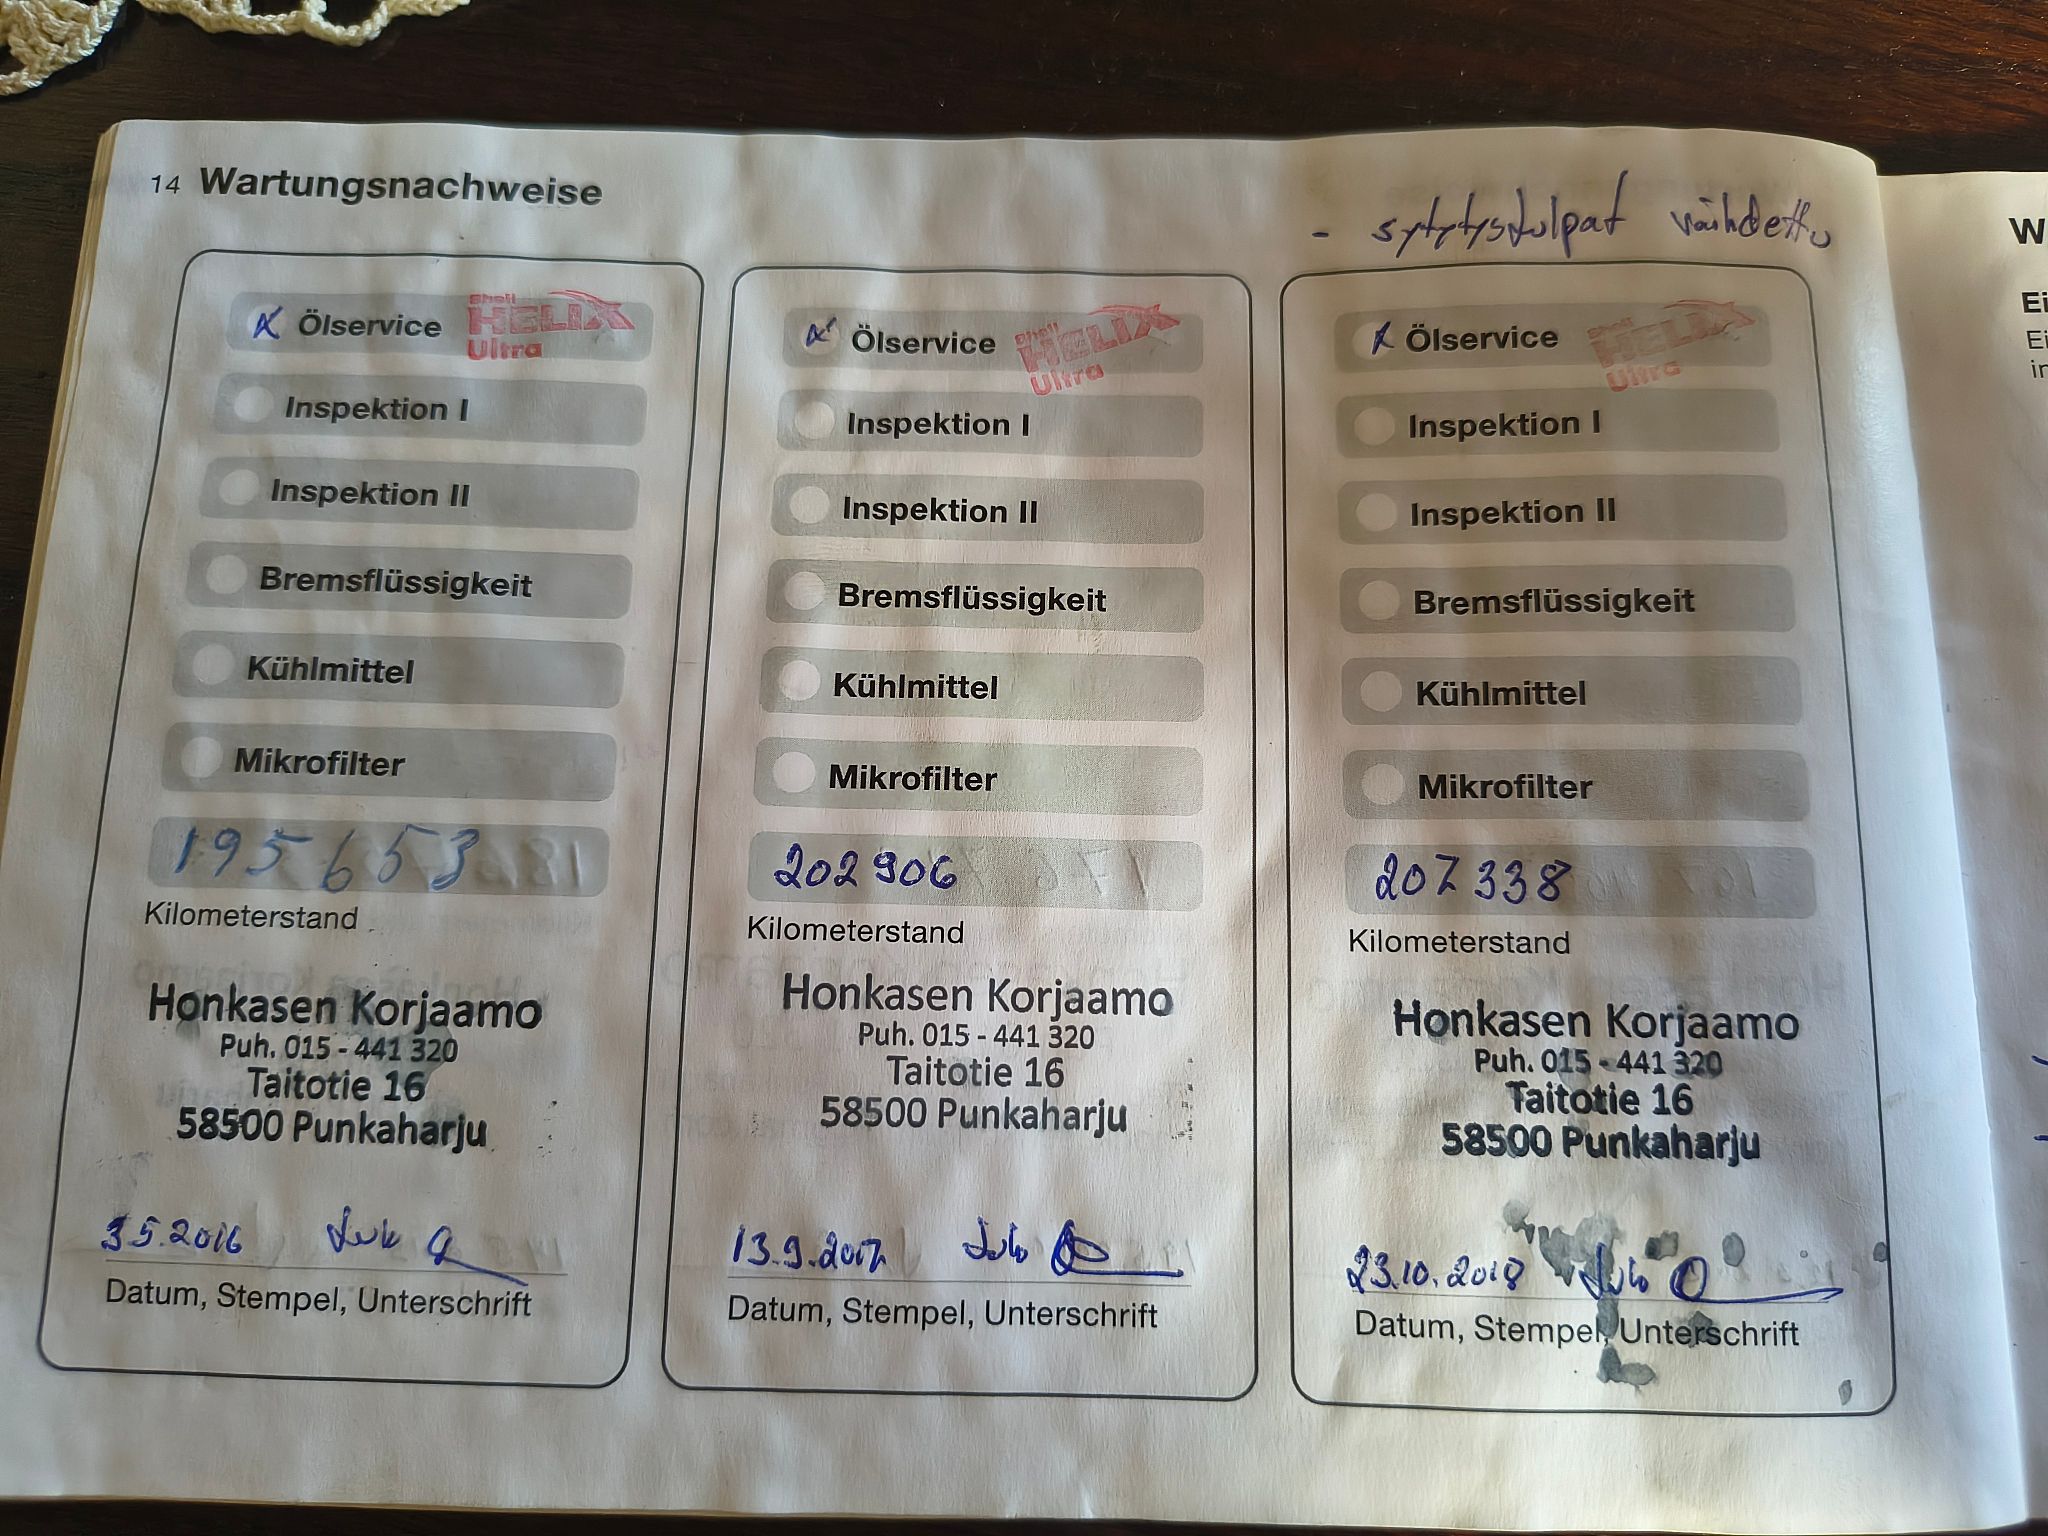 14 Wartungsnachweise
- sytytystulpat vaihdettu
Ölservice
Shell
HELIX
Ultra
Inspektion I
Inspektion II
Bremsflüssigkeit
Kühlmittel
Mikrofilter
195653
Kilometerstand
Honkasen Korjaamo
Puh. 015 - 441 320
Taitotie 16
58500 Punkaharju
3.5.2016
Datum, Stempel, Unterschrift
Ölservice
Shell
HELIX
Ultra
Inspektion I
Inspektion II
Bremsflüssigkeit
Kühlmittel
Mikrofilter
202906
Kilometerstand
Honkasen Korjaamo
Puh. 015 - 441 320
Taitotie 16
58500 Punkaharju
13.9.2017
Datum, Stempel, Unterschrift
Ölservice
Shell
HELIX
Ultra
Inspektion I
Inspektion II
Bremsflüssigkeit
Kühlmittel
Mikrofilter
207338
Kilometerstand
Honkasen Korjaamo
Puh. 015 - 441 320
Taitotie 16
58500 Punkaharju
23.10.2018
Datum, Stempel, Unterschrift